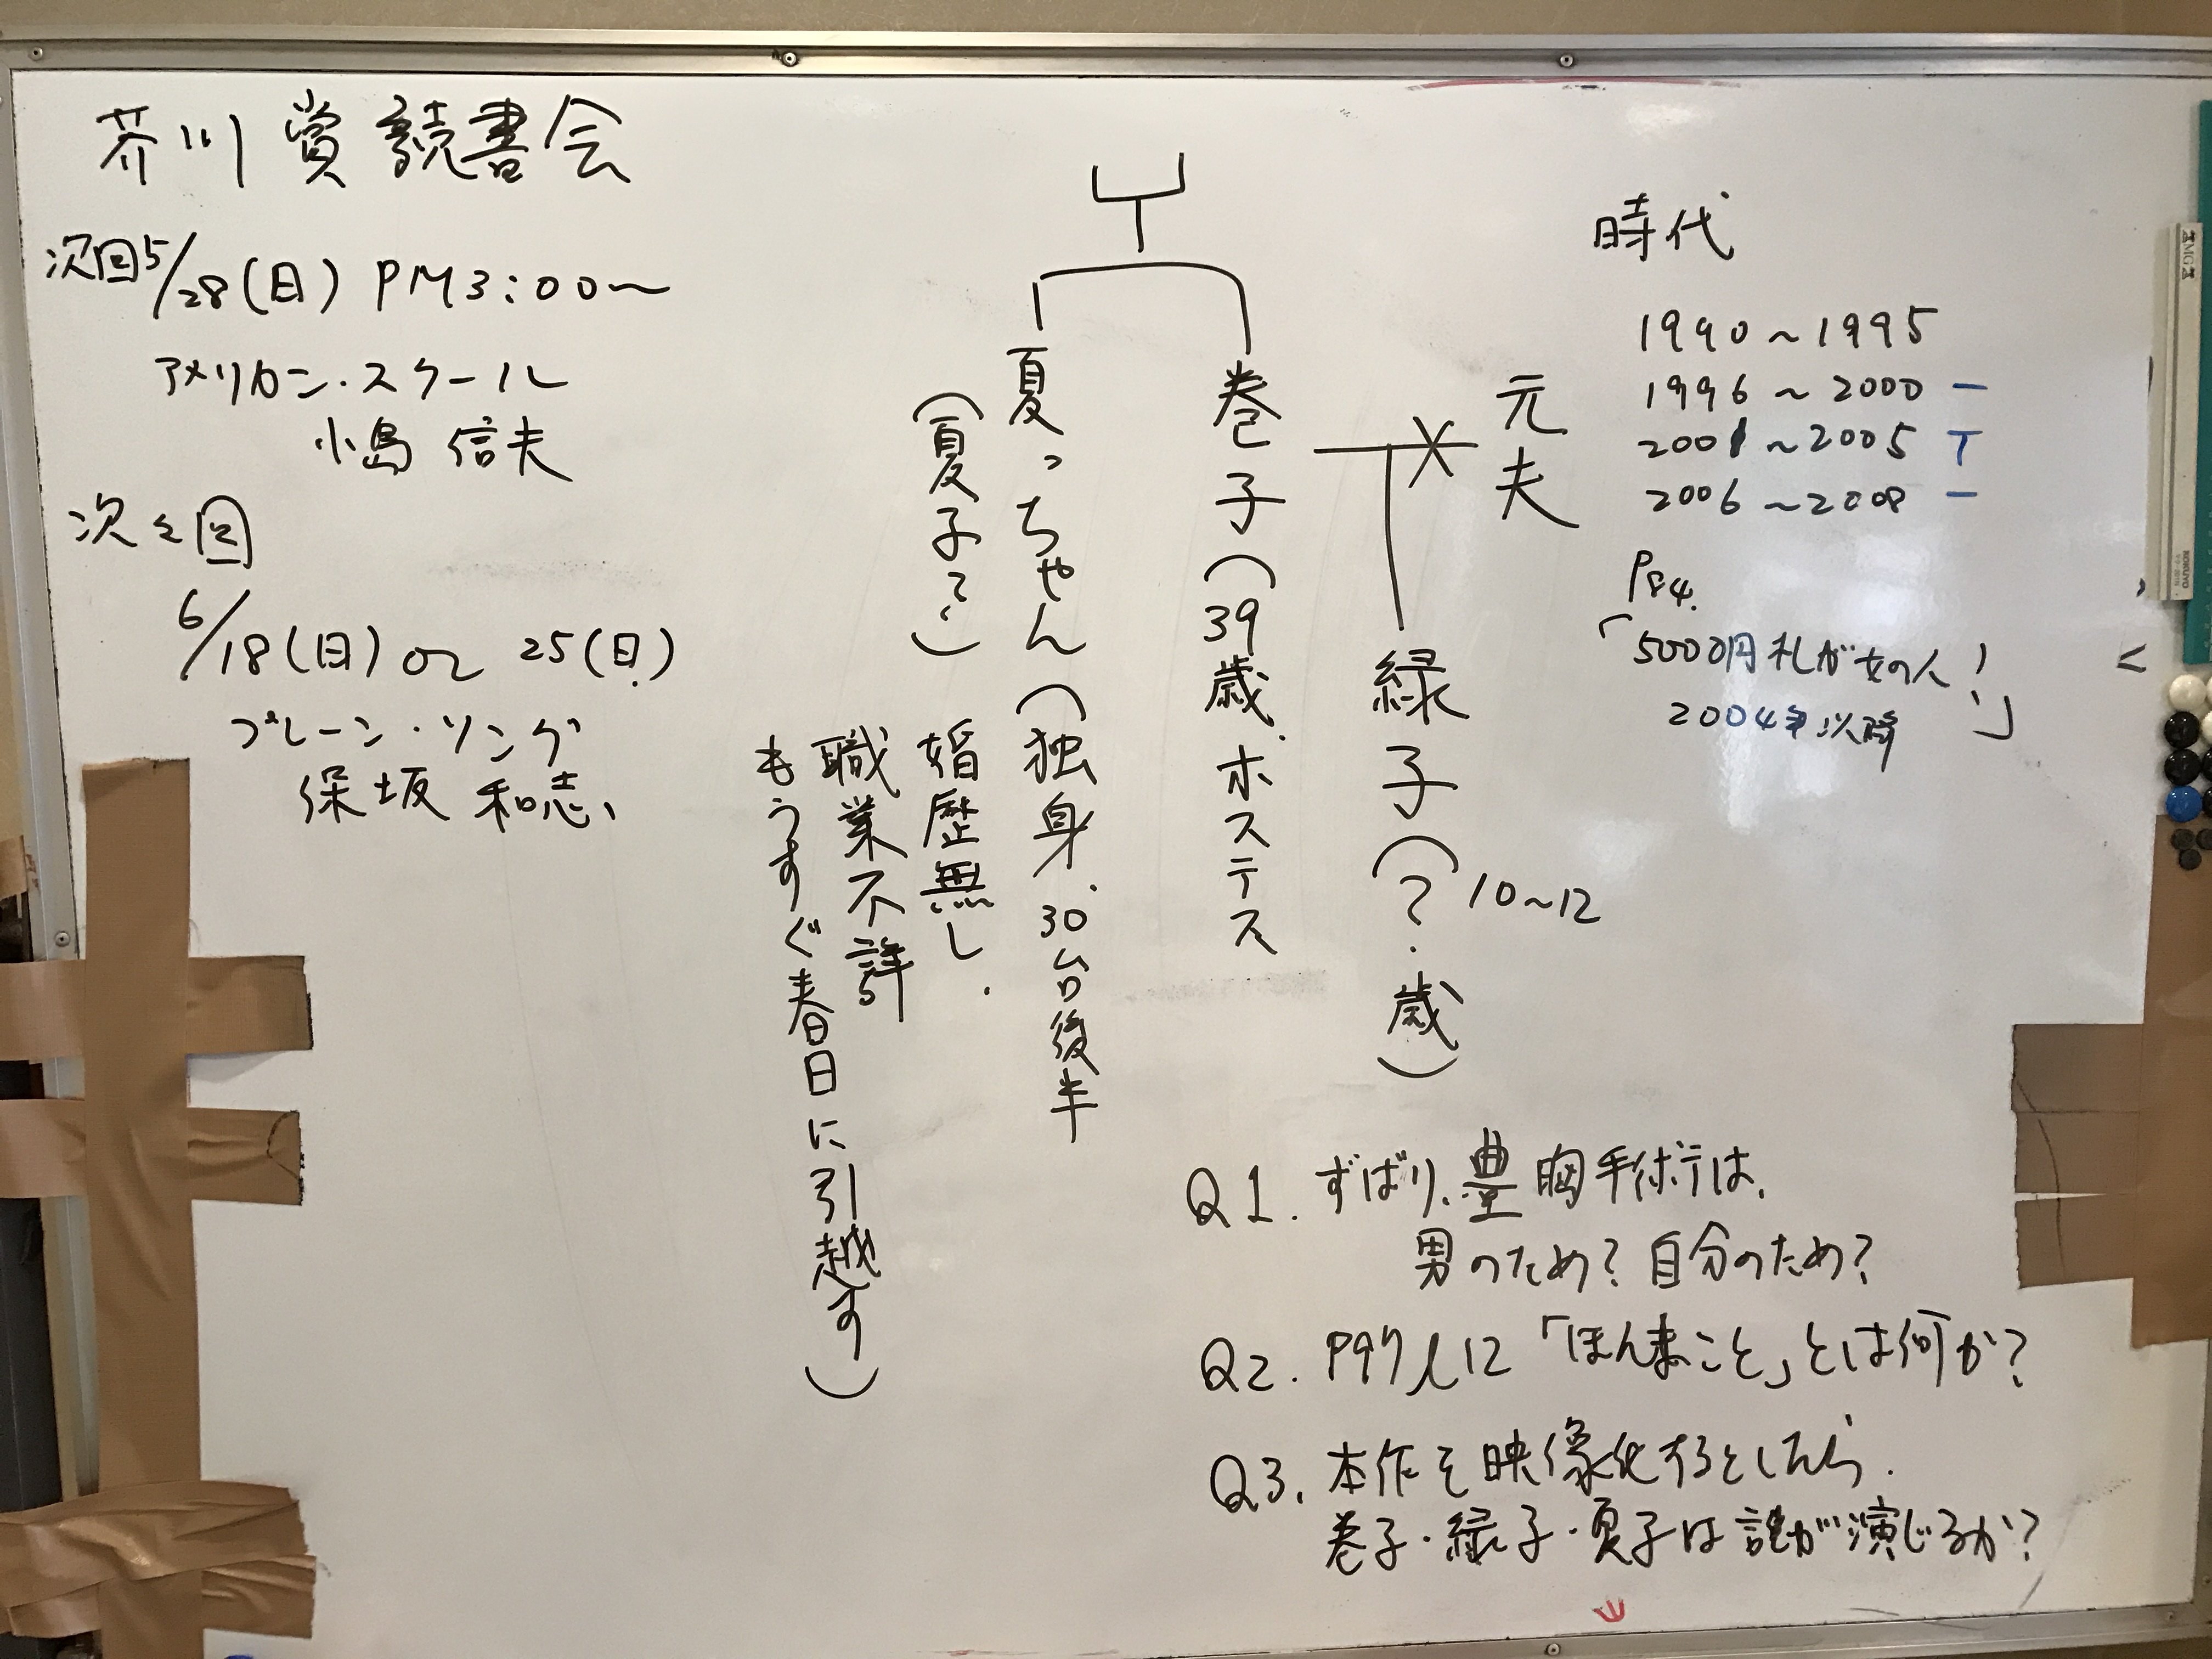 芥川賞読書会
次回5/28(日) PM3:00〜
アメリカン・スクール
小島 信夫
次々回
6/18(日) or 25(日)
プレーン・ソング
保坂 和志
元夫
緑子(?歳)
10〜12
巻子(39歳、ホステス
夏っちゃん(独身、30台後半
(夏子?)
婚歴無し.
職業不詳
もうすぐ春日に引越す)
時代
1990〜1995
1996〜2000 一
2001〜2005 T
2006〜2008 一
P84.
「5000円札が女の人!」
2004年以降
Q1. ずばり、豊胸手術は、
男のため? 自分のため?
Q2. P97 l12「ほんまこと」とは何か?
Q3. 本作を映像化するとしたら、
巻子・緑子・夏子は誰が演じるか?